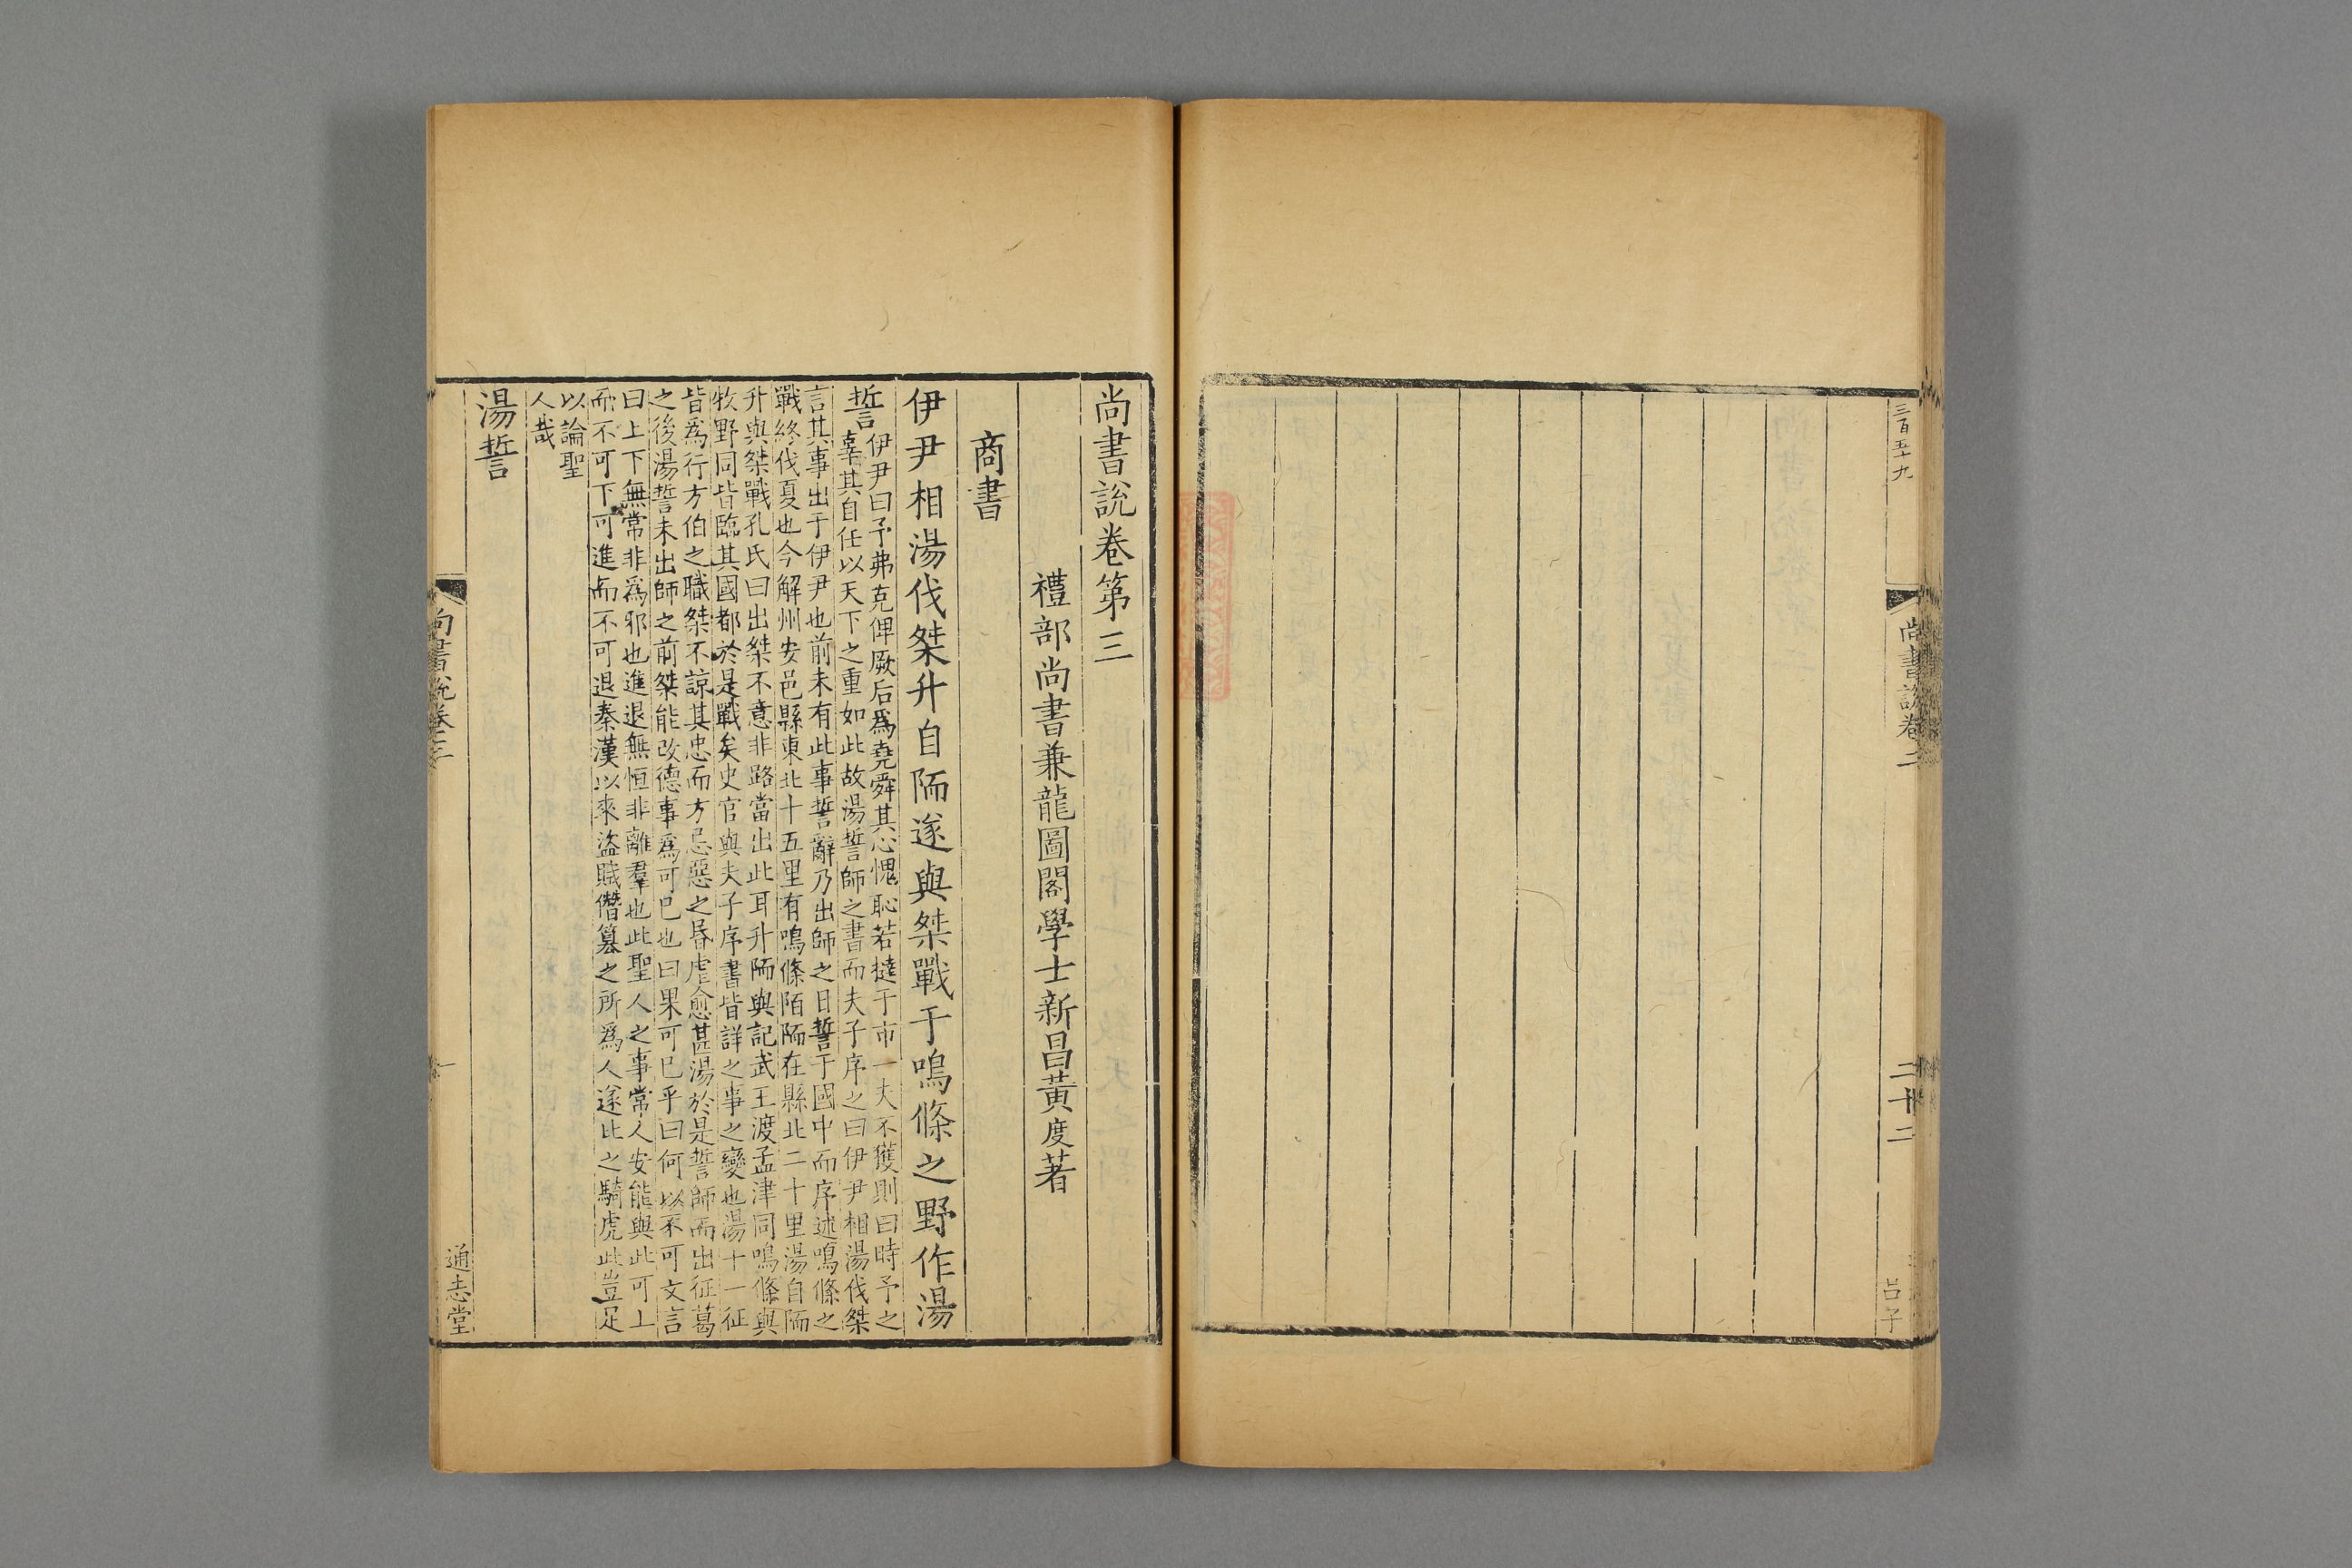 三百五十九
尚書說卷二
二十二
呂子
尚書說卷第三
禮部尚書兼龍圖閣學士新昌黃度著
商書
伊尹相湯伐桀升自陑遂與桀戰于鳴條之野作湯
誓
伊尹曰予弗克俾厥后爲堯舜其心愧恥若撻于市一夫不獲則曰時予之
辜其自任以天下之重如此故湯誓師之書而夫子序之曰伊尹相湯伐桀
言其事出于伊尹也前未有此事誓辭乃出師之日誓于國中而序述鳴條之
戰終伐夏也今解州安邑縣東北十五里有鳴條陌陑在縣北二十里湯自陑
升與桀戰孔氏曰出桀不意非路當出此耳升陑與記武王渡孟津同鳴條與
牧野同皆臨其國都於是戰矣史官與夫子序書皆詳之事之變也湯十一征
皆爲行方伯之職桀不諒其忠而方忌惡之昬虐愈甚湯於是誓師而出征葛
之後湯誓未出師之前桀能改德事爲可已也曰果可已乎曰何以不可文言
曰上下無常非爲邪也進退無恒非離羣也此聖人之事常人安能與此可上
而不可下可進而不可退秦漢以來盜賊僭簒之所爲人遂比之騎虎此豈足
以論聖
人哉
湯誓
尚書說卷三
一
通志堂